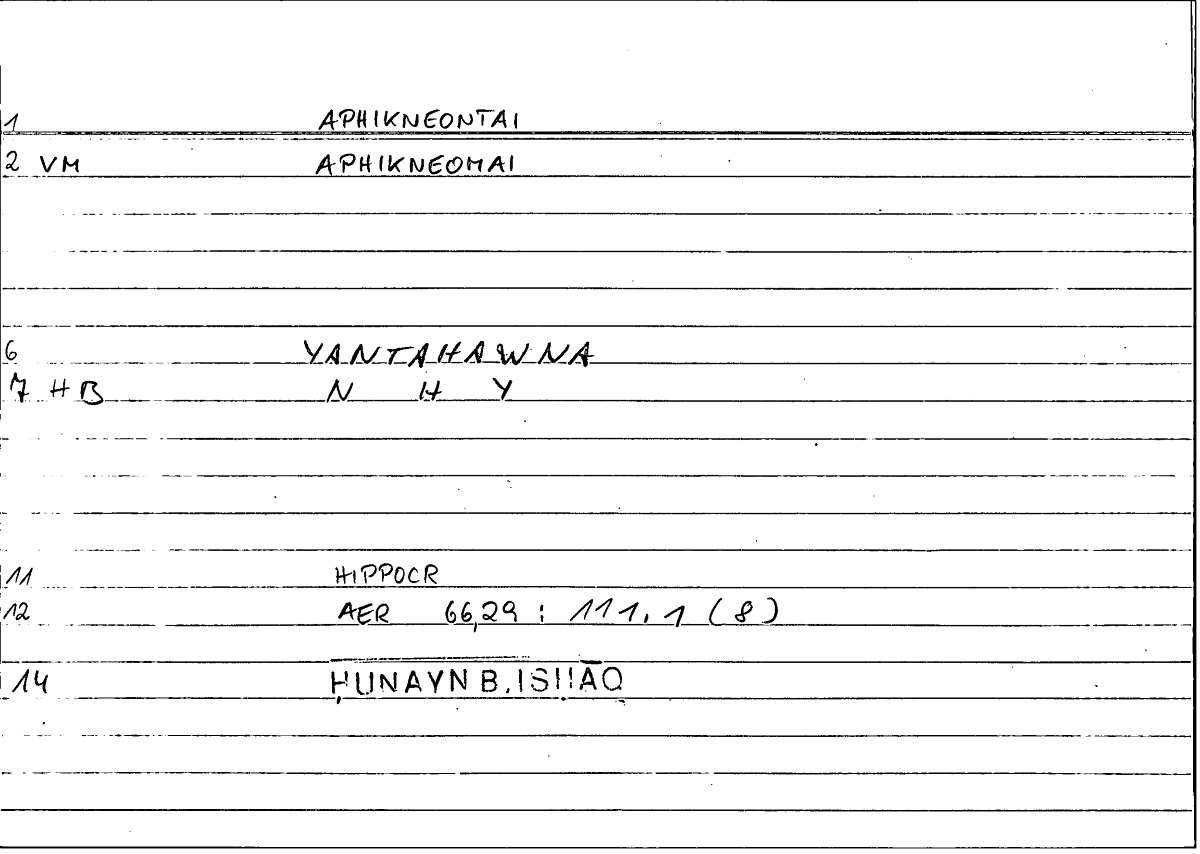 1 APHIKNEONTAI
2 VM APHIKNEOMAI
6 YANTAHAWNA
7 HB N H Y
11 HIPPOCR
12 AER 66,29 : 111,1 (8)
14 ḤUNAYN B. ISḤĀQ